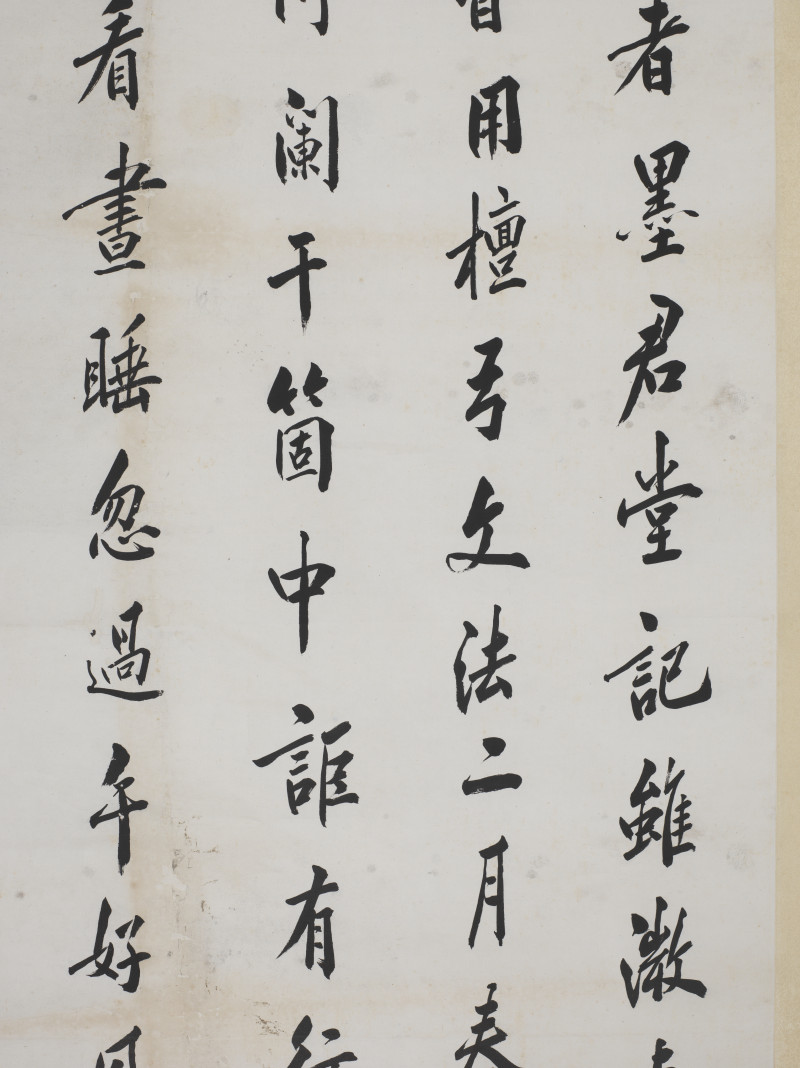 者墨君堂記雖激
用檀弓文法二月春
闌干箇中詎有行
看晝睡忽過午好